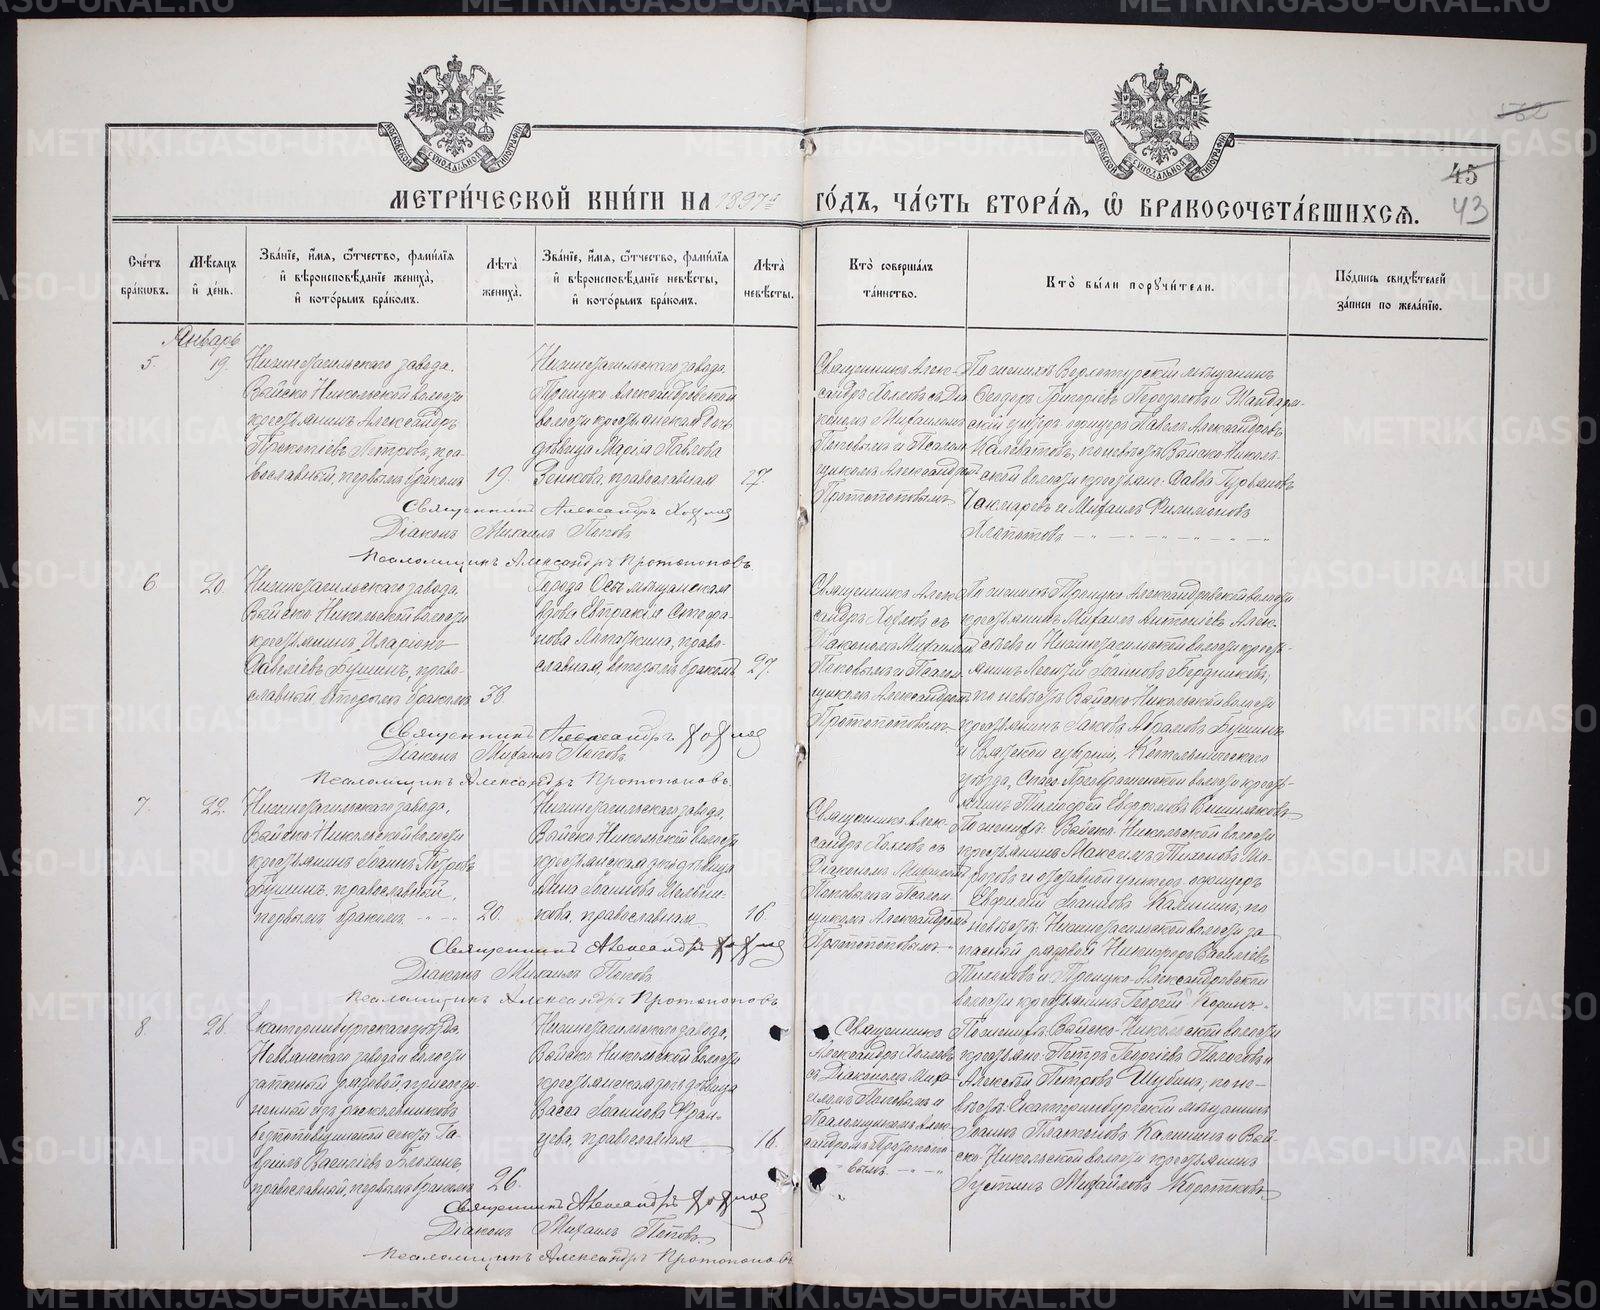 МЕТРИ́ЧЕСКОЙ КНИ́ГИ НА 1897й ГО́ДЪ, ЧА́СТЬ ВТОРА́Я, Ѡ҆ БРАКОСОЧЕТА́ВШИХСѦ.
45
43
Сче́тъ
бра́кѡвъ.
Мѣ́сѧцъ
и҆ де́нь.
Зва́нїе, и҆́мѧ, ѻ҆́тчество, фами́лїѧ
и҆ вѣроисповѣ́данїе жениха̀,
и҆ кото́рымъ бра́комъ.
Лѣ́та
жениха̀.
Зва́нїе, и҆́мѧ, ѻ҆́тчество, фами́лїѧ
и҆ вѣроисповѣ́данїе невѣ́сты,
и҆ кото́рымъ бра́комъ.
Лѣ́та
невѣ́сты.
Кто̀ соверша́лъ
та́инство.
Кто̀ бы́ли порꙋчи́тели.
По́дпись свидѣ́телей
за́писи по жела́нїю.
Январь
5.
19.
Нижнетагильскаго завода,
Выйско-Никольской волости
крестьянинъ Александръ
Прокопіевъ Петровъ, пра-
вославный, первымъ бракомъ
19.
Нижнетагильскаго завода
Троицко Александровской
волости крестьянская дочь
дѣвица Марія Павлова
православная
27.
Священникъ Алек-
сандръ Хохловъ съ Діа-
кономъ Михаиломъ
Поповымъ и Псалом-
щикомъ Александромъ
Протопоповымъ
По женихѣ Верхотурскій мѣщанинъ
Ѳеодоръ Григоріевъ
Павелъ Александровъ
по невѣстѣ Выйско-Николь-
ской волости крестьяне Савва
и Михаилъ Филимоновъ
Священникъ Александръ Хохловъ
Діаконъ Михаилъ Поповъ
Псаломщикъ Александръ Протопоповъ
6
20.
Нижнетагильскаго завода,
Выйско-Никольской волости
крестьянинъ Иларіонъ
Савеліевъ Бушинъ, право-
славный, вторымъ бракомъ
38.
Города Осы мѣщанская
вдова Евпраксія Стефа-
нова право-
славная, вторымъ бракомъ
27.
Священникъ Алек-
сандръ Хохловъ съ
Діакономъ Михаиломъ
Поповымъ и Псалом-
щикомъ Александромъ
Протопоповымъ
По женихѣ Троицко Александровской волости
крестьянинъ Михаилъ Антоніевъ Алек-
сѣевъ и Нижнетагильской волости кресть-
янинъ Леонтій Іоанновъ Бердниковъ,
по невѣстѣ Выйско-Никольской волости
крестьянинъ Іаковъ Абрамовъ Бушинъ
и Вятской губерніи, Котельническаго
уѣзда, Спасо-Преображенской волости кресть-
янинъ Тимоѳей
Священникъ Александръ Хохловъ
Діаконъ Михаилъ Поповъ
Псаломщикъ Александръ Протопоповъ.
7.
22.
Нижнетагильскаго завода,
Выйско-Никольской волости
крестьянинъ Іоаннъ Петровъ
Бушинъ, православный,
первымъ бракомъ
20.
Нижнетагильскаго завода,
Выйско-Никольской волости
крестьянская дочь дѣвица
Анна Іоаннова Мельни-
кова, православная
16.
Священникъ Алек-
сандръ Хохловъ съ
Діакономъ Михаиломъ
Поповымъ и Псалом-
щикомъ Александромъ
Протопоповымъ
По женихѣ Выйско-Никольской волости
крестьянинъ Максимъ Тихоновъ
и отставной унтеръ-офицеръ
Іоанновъ Калининъ, по
невѣстѣ Нижнетагильской волости за-
пасный рядовой Никифоръ Василіевъ
и Троицко-Александровской
волости крестьянинъ Георгій
Священникъ Александръ Хохловъ
Діаконъ Михаилъ Поповъ
Псаломщикъ Александръ Протопоповъ
8
26.
Екатеринбургскаго уѣзда,
Невьянскаго завода и волости
запасный рядовой присоеди-
ненный изъ раскольниковъ
безпоповщинской секты Га-
вріилъ Василіевъ Блохинъ,
православный, первымъ бракомъ
26.
Нижнетагильскаго завода,
Выйско-Никольской волости
крестьянская дочь дѣвица
Васса Іоаннова Фран-
цева, православная
16.
Священникъ
Александръ Хохловъ
съ Діакономъ Миха-
иломъ Поповымъ и
Псаломщикомъ Алек-
сандромъ Протопопо-
вымъ
По женихѣ Выйско-Никольской волости
крестьяне Петръ Георгіевъ и
Алексѣй Петровъ Шубинъ, по не-
вѣстѣ Екатеринбургскій мѣщанинъ
Іоаннъ Платоновъ Калининъ и Вый-
ско-Никольской волости крестьянинъ
Густинъ Михайловъ Коротковъ
Священникъ Александръ Хохловъ
Діаконъ Михаилъ Поповъ.
Псаломщикъ Александръ Протопоповъ
METRIKI.GASO-URAL.RU